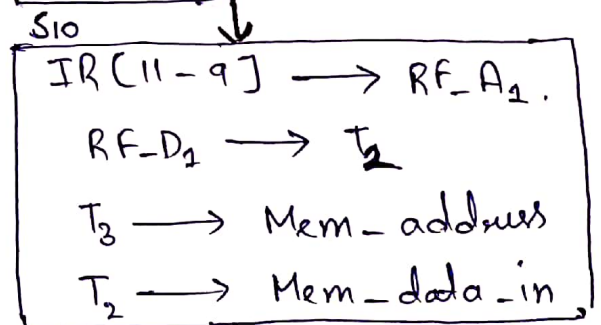 S10
IR[11-9] → RF_A1.
RF_D1 → T2
T3 → Mem_address
T2 → Mem_data_in